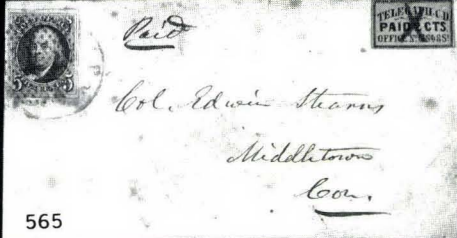 Paid
TELEGRAPH Cº
PAID CTS
5 5
Col. Edwin Stearns
Middletown
Con.
565